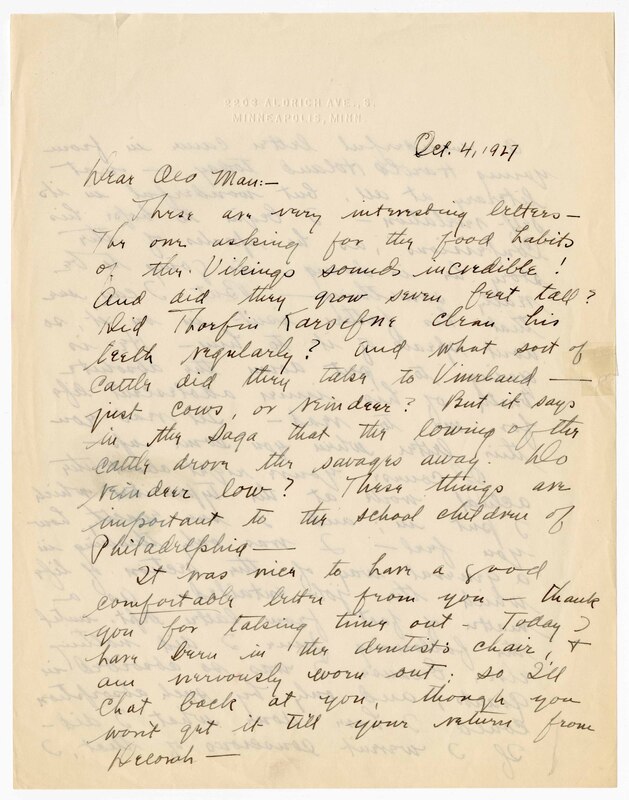 2203 ALDRICH AVE., S.
MINNEAPOLIS, MINN
Oct. 4, 1927
Dear Old Man:-
These are very interesting letters-
The one asking for the food habits
of the Vikings sounds incredible!
And did they grow seven feet tall?
Did Thorfin Karsefne clean his
teeth regularly? And what sort of
cattle did they take to Vineland —
just cows, or reindeer? But it says
in the Saga that the lowing of the
cattle drove the savages away. Do
reindeer low? These things are
important to the school children of
Philadelphia —
It was nice to have a good
comfortable letter from you - thank
you for taking time out - Today I
have been in the dentists chair, &
am nervously worn out; so I'll
chat back at you, though you
won't get it till your return from
Decorah —